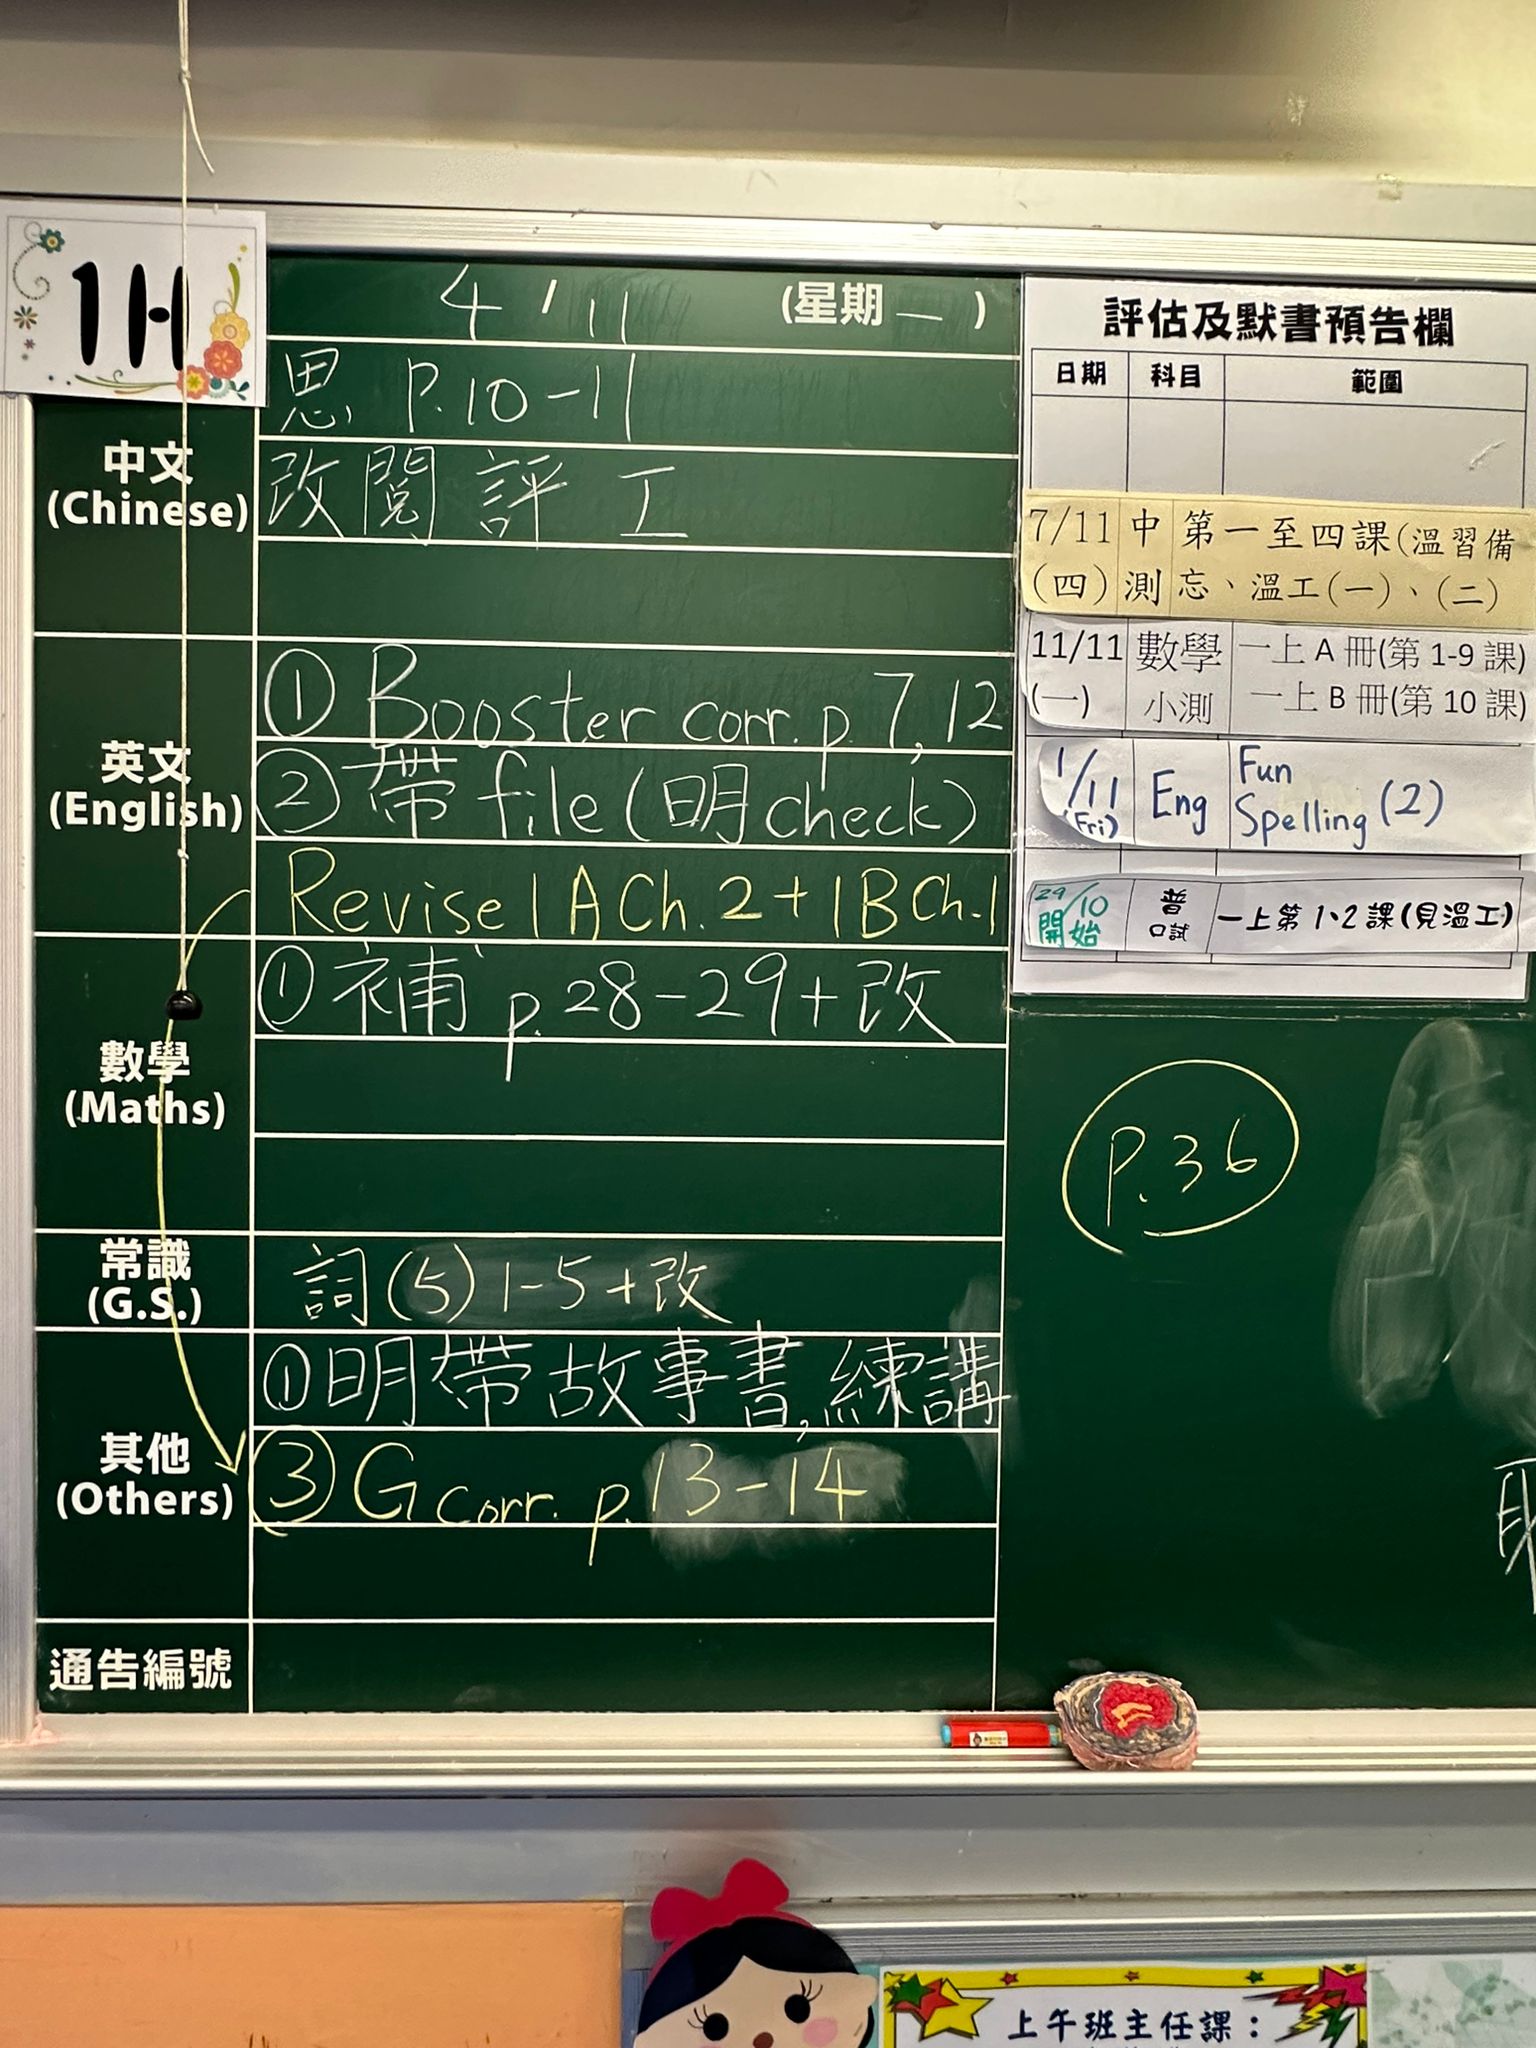 1H
4/11 (星期一)
中文
(Chinese)
思 P.10-11
改閱評工
英文
(English)
① Booster corr. p. 7, 12
② 帶 file (明 check)
Revise 1A Ch. 2 + 1B Ch. 1
數學
(Maths)
① 補 p. 28-29 + 改
常識
(G.S.)
詞(5) 1-5 + 改
其他
(Others)
① 明帶故事書,練講
③ G corr. p. 13-14
通告編號
評估及默書預告欄
日期 科目 範圍
7/11 中 第一至四課(溫習備
(四) 測 忘、溫工(一)、(二)
11/11 數學 一上 A 冊(第 1-9 課)
(一) 小測 一上 B 冊(第 10 課)
1/11 Eng Fun
(Fri) Spelling (2)
29/10 普 一上第1、2課(見溫工)
開始 口試
P.36
上午班主任課：